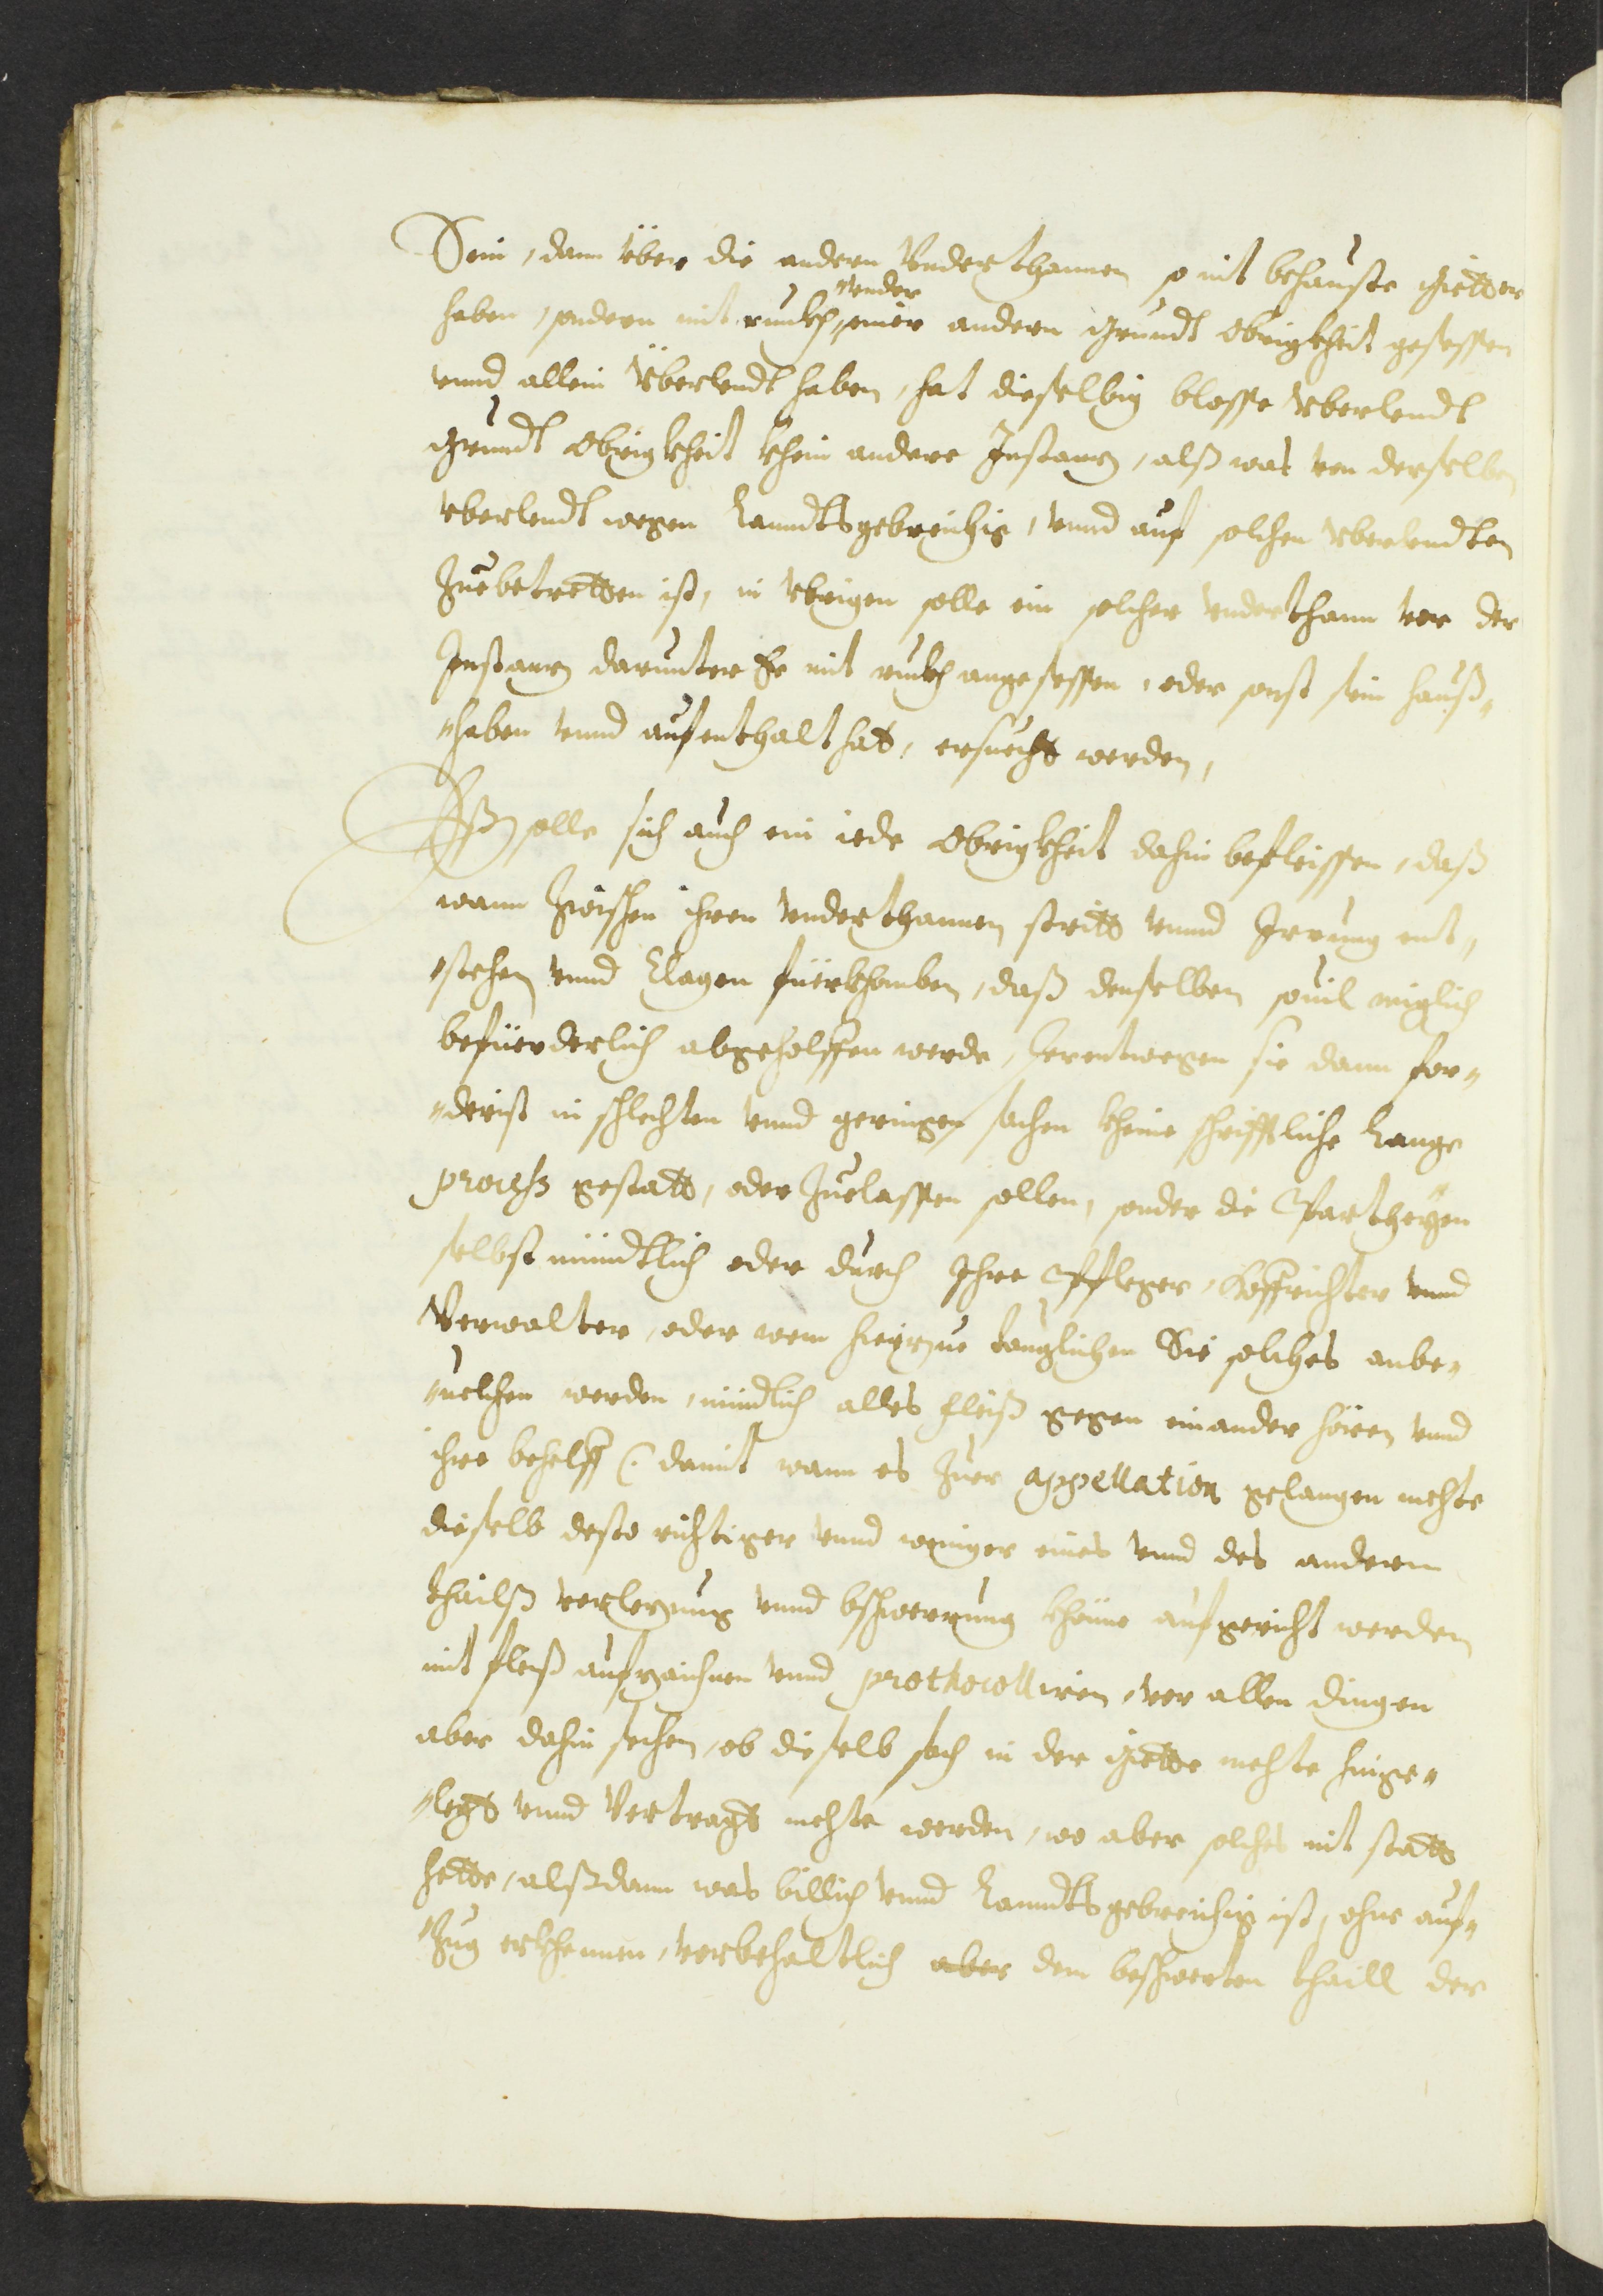 Sein, dann über die andern Underthannen so nit behauste Güetter
haben, sondern mit rukh under einer andern Grundt Obrigkheit gesessen
vnnd allein Überlendt haben, hat dieselbig blosse Vberlendt
Grundt Obrigkheit khein andere Instanz, alß was von derselben
vberlendt wegen Lanndtsgebreichig, vnnd auf solchen vberlendten
Zuebetretten ist, in vbrigen solle ein solcher vnderthann vor der
Instanz darunter Er mit rukh angesessen, oder sonst sein hauß„
„haben vnnd aufenthalt hat, ersuecht werden,
Eß solle sich auch ein iede Obrigkheit dahin befleissen, daß
wann Zwischen ihren vnderthannen stritt vnnd Irrung ent„
„stehen vnnd Clagen fürkhomben, daß denselben souil miglich
befürderlich abgeholffen werde, herentwegen sie dann for„
„derist in schlechten vnnd geringen sachen kheine schrifftliche Lange
process gestatt, oder Zuelassen sollen, sonder die Partheyen
selbst mündtlich oder durch Ihre Pfleger, Hoffrichter vnnd
Verwalter, oder wem hierzue tauglichen Sie solches anbe„
„uelchen werden, mündlich alles fleiß gegen einander hören vnnd
ihre behelff (: damit wann es Zuer appellation gelangen mechte
dieselb desto richtiger vnnd weniger eines vnnd des andern
thailß verlezung vnnd bschwerung khönne aufgericht werden
mit fleiß aufzaichnen vnnd prothocolliren, vor allen dingen
aber dahin sechen, ob dieselb sach in der Güette mechte hinge„
„legt vnnd Vertragt mechte werden, wo aber solches nit statt
hette, alßdann was billich vnnd Lanndtsgebreichig ist, ohne auf„
„Zug erkhennen, vorbehaltlich aber dem beschwerten thaill der